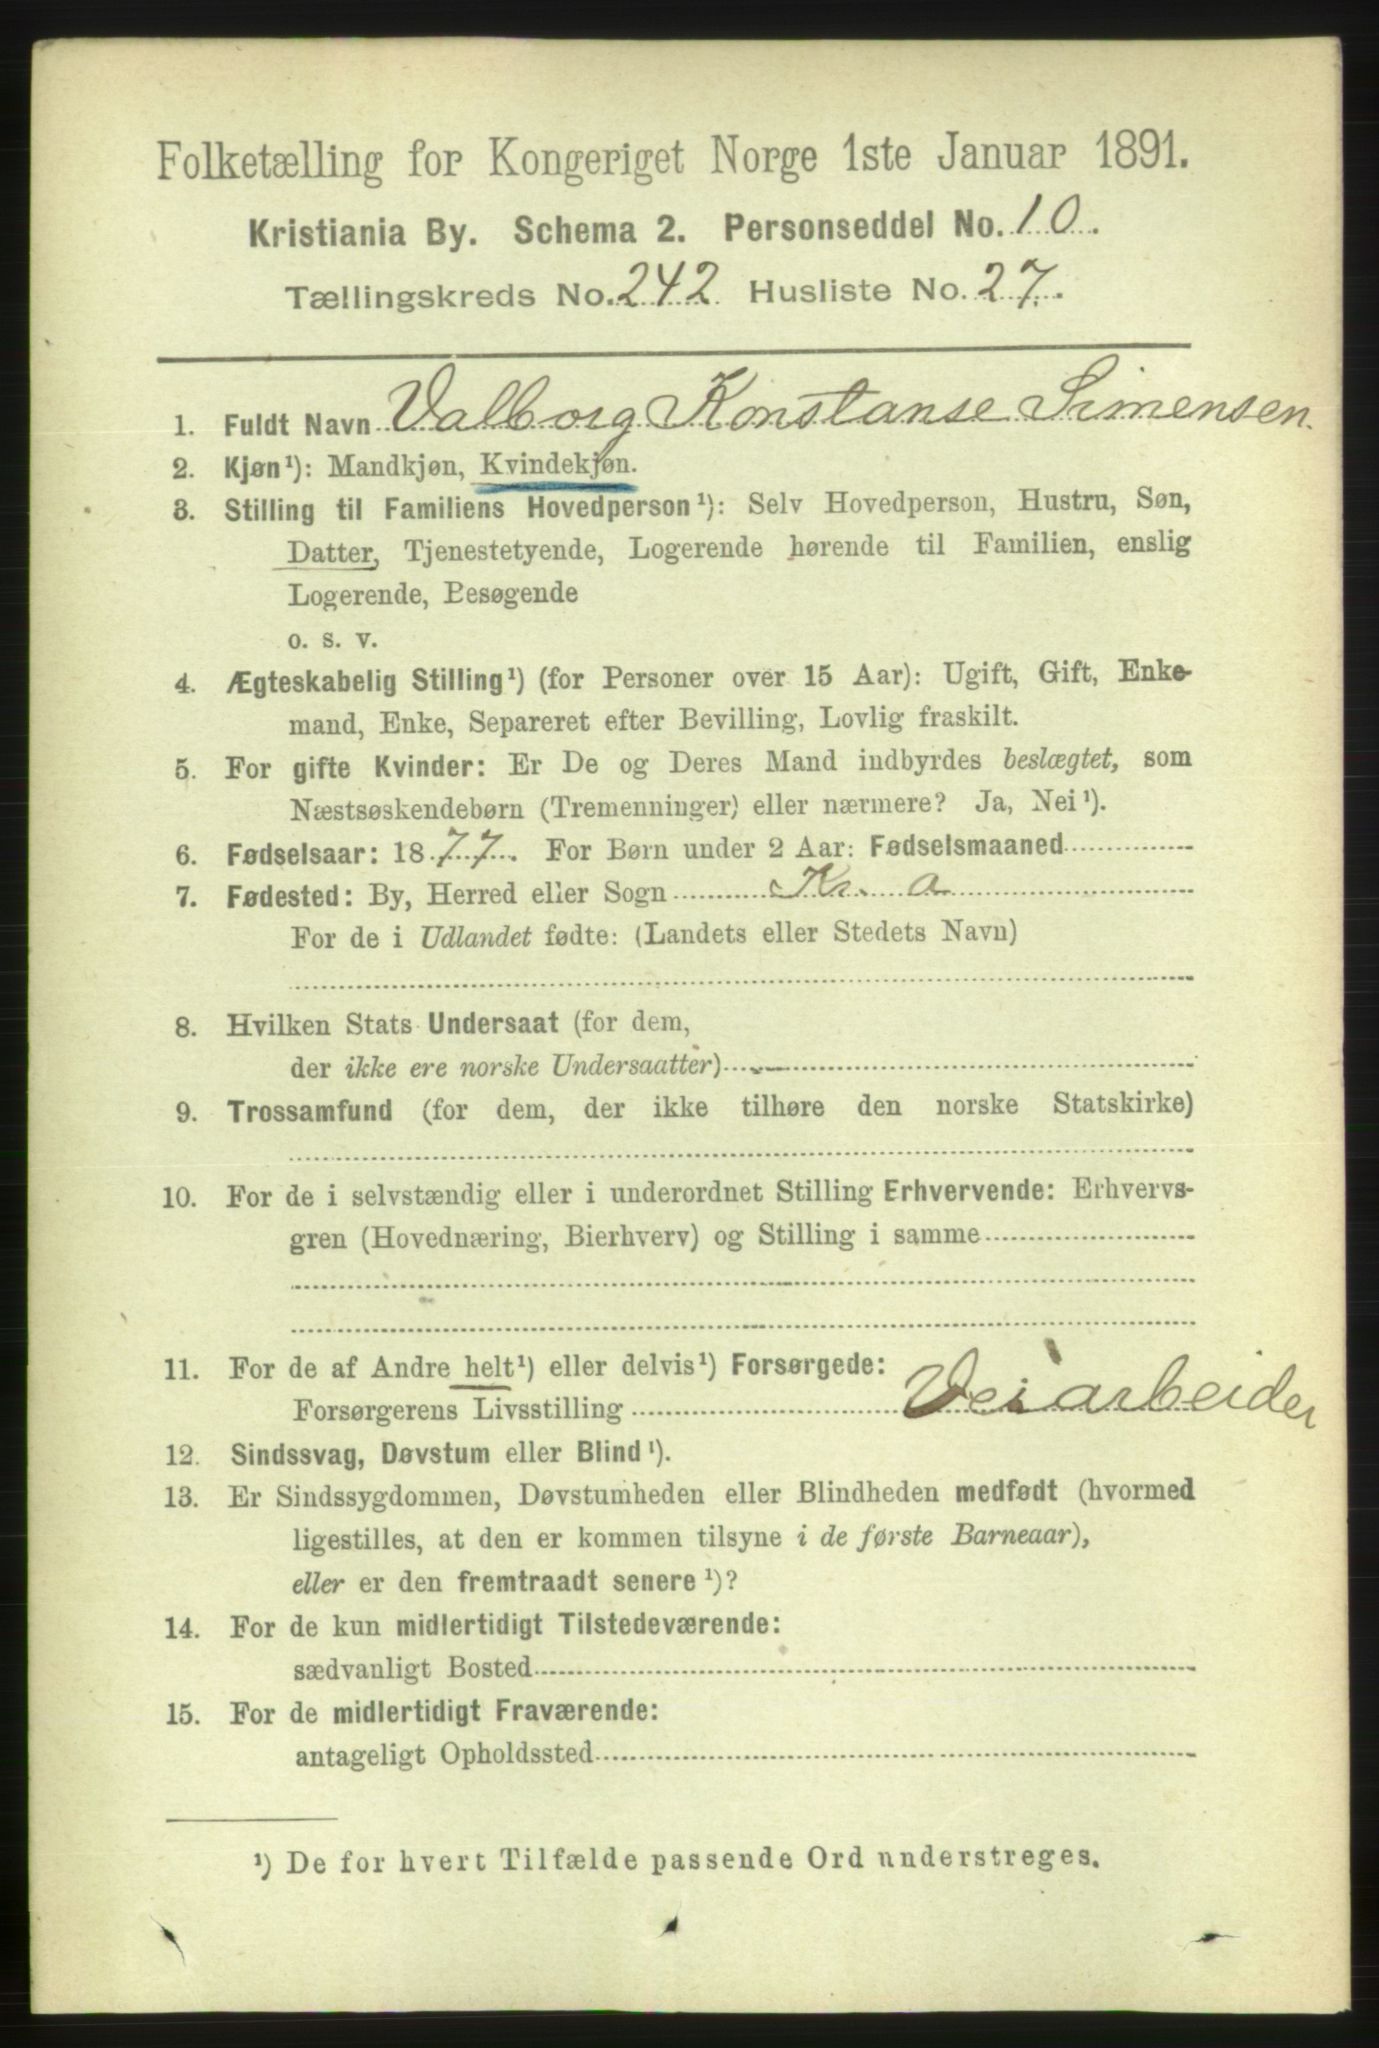 Folketælling for Kongeriget Norge 1ste Januar 1891.
Kristiania By. Schema 2. Personseddel No. 10.
Tællingskreds No. 242 Husliste No. 27.
1. Fuldt Navn Valborg Konstanse Simensen.
2. Kjøn¹): Mandkjøn, Kvindekjøn.
3. Stilling til Familiens Hovedperson¹): Selv Hovedperson, Hustru, Søn,
Datter, Tjenestetyende, Logerende hørende til Familien, enslig
Logerende, Besøgende
o. s. v.
4. Ægteskabelig Stilling¹) (for Personer over 15 Aar): Ugift, Gift, Enke-
mand, Enke, Separeret efter Bevilling, Lovlig fraskilt.
5. For gifte Kvinder: Er De og Deres Mand indbyrdes beslægtet, som
Næstsøskendebørn (Tremenninger) eller nærmere? Ja, Nei¹).
6. Fødselsaar: 1877. For Børn under 2 Aar: Fødselsmaaned
7. Fødested: By, Herred eller Sogn Kr. a
For de i Udlandet fødte: (Landets eller Stedets Navn)
8. Hvilken Stats Undersaat (for dem,
der ikke ere norske Undersaatter)
9. Trossamfund (for dem, der ikke tilhøre den norske Statskirke)
10. For de i selvstændig eller i underordnet Stilling Erhvervende: Erhvervs-
gren (Hovednæring, Bierhverv) og Stilling i samme
11. For de af Andre helt¹) eller delvis¹) Forsørgede:
Forsørgerens Livsstilling Veiarbeider
12. Sindssvag, Døvstum eller Blind¹).
13. Er Sindssygdommen, Døvstumheden eller Blindheden medfødt (hvormed
ligestilles, at den er kommen tilsyne i de første Barneaar),
eller er den fremtraadt senere¹)?
14. For de kun midlertidigt Tilstedeværende:
sædvanligt Bosted
15. For de midlertidigt Fraværende:
antageligt Opholdssted
¹) De for hvert Tilfælde passende Ord understreges.